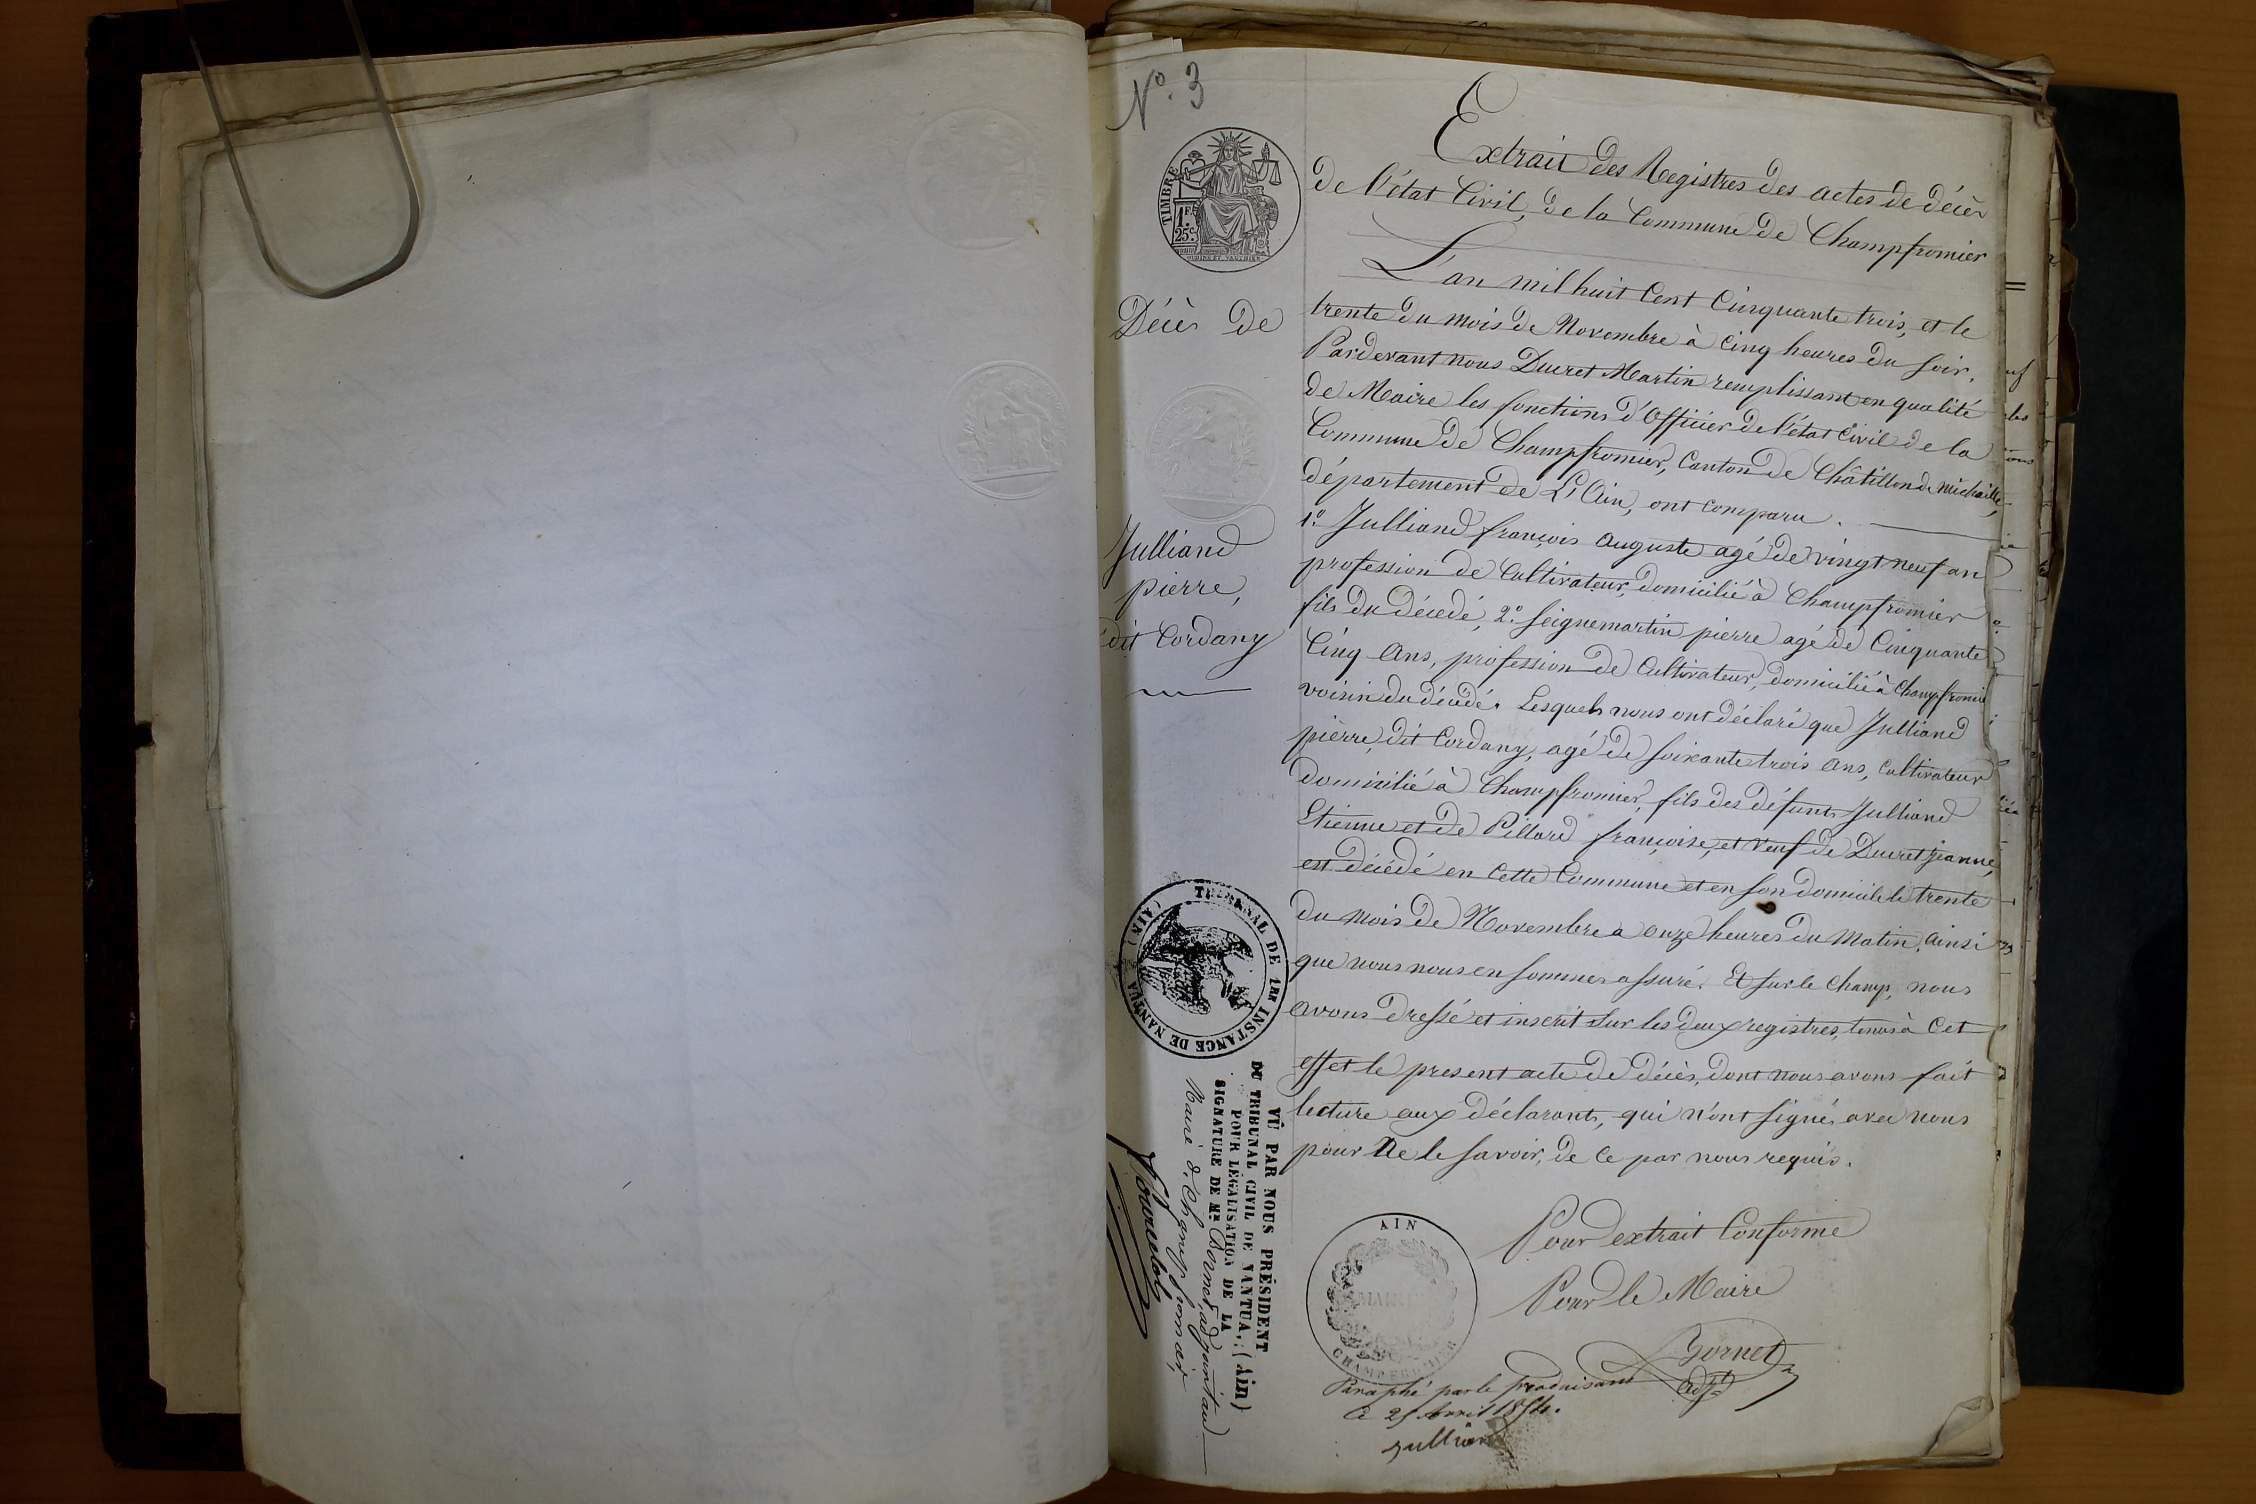 N.º 3
TIMBRE
1.FR
25.c
Extrait des Registres des actes de décès
de l'état Civil, de la Commune de Champfromier
Décès de
Julliand
pierre,
dit Cordany
L'an mil huit Cent Cinquante trois, et le
trente du mois de Novembre à Cinq heures du soir,
Pardevant nous Ducret Martin remplissant en qualité
de Maire les fonctions d'Officier de l'état Civil de la
Commune de Champfromier, Canton de Châtillon de Michaille,
département de L'Ain, ont comparu.
1.º Julliand françois Auguste agé de vingt neuf an
profession de Cultivateur, domicilié à Champfromier
fils du décedé, 2.º Seignemartin pierre agé de Cinquante
Cinq Ans, profession de Cultivateur, domicilié à Champfromier
voisin du décedé. Lesquels nous ont déclaré que Julliand
pierre, dit Cordany, agé de soixante trois Ans, Cultivateur
domicilié à Champfromier, fils des défunts Julliand
Etienne et de Pillard françoise, et veuf de Ducret Jeanne,
est décédé en Cette Commune et en son domicile le trente
du mois de Novembre a onze heures du Matin, Ainsi
que nous nous en sommes assuré. Et sur le Champ, nous
avons dressé et inscrit sur les deux registres, tenus à Cet
effet le present acte de décès, dont nous avons fait
lecture aux déclarants, qui n'ont signé avec nous
pour Ne le savoir, de Ce par nous requis.
Pour extrait Conforme
Pour le Maire
Bornet
adj.t
TRIBUNAL DE 1RE INSTANCE DE NANTUA (AIN)
VÛ PAR NOUS PRÉSIDENT
DU TRIBUNAL CIVIL DE NANTUA, (Ain)
POUR LÉGALISATION DE LA
SIGNATURE DE Mr. Bornet, adjoint au
Maire de Champfromier,
AIN
MAIRIE
CHAMPFROMIER
Paraphé par le produisant
Ce 25 Avril 1854.
Julliand